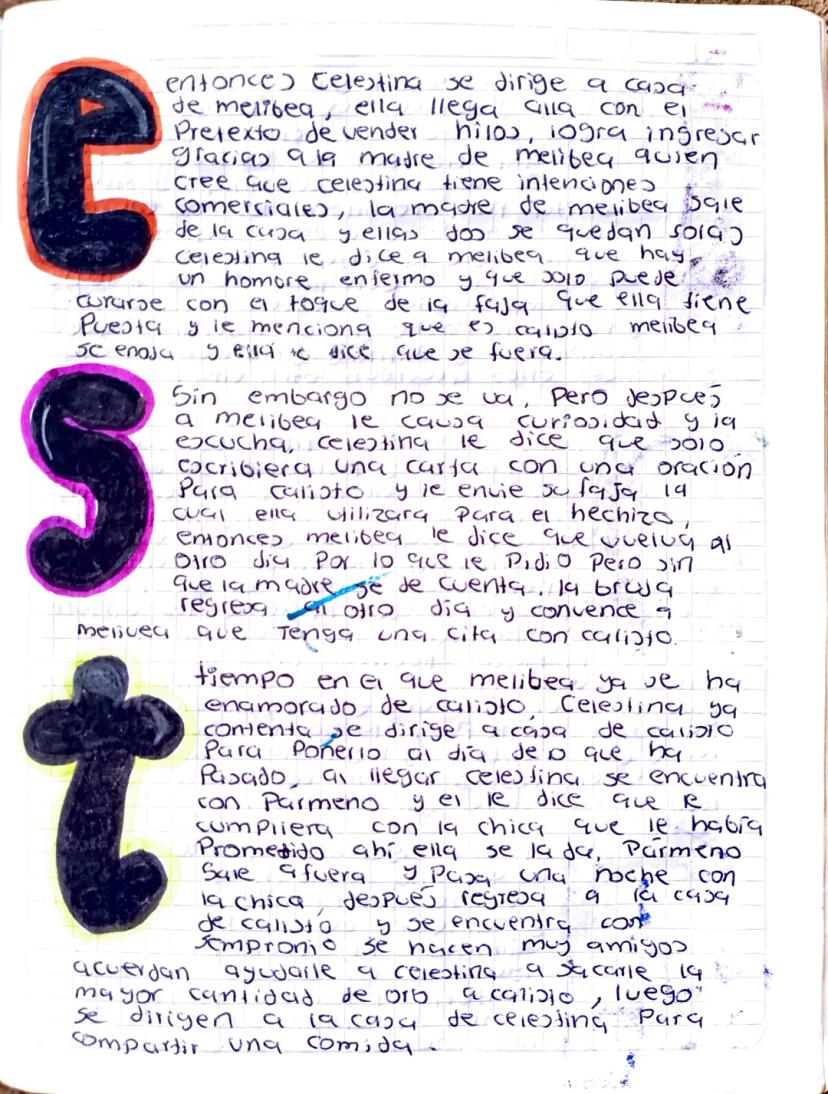 e
entonces Celestina se dirige a casa
de melibea, ella llega alla con el
Pretexto de vender hilos, logra ingresar
gracias a la madre de melibea quien
cree que celestina tiene intenciones
comerciales, la madre de melibea sale
de la casa y ellas dos se quedan solas
celestina le dice a melibea que hay
un hombre enfermo y que solo puede
curarse con el toque de la faja que ella tiene
Puesta y le menciona que es calisto melibea
se enoja y ella le dice que se fuera.
s
Sin embargo no se va, Pero despues
a melibea le causa curiosidad y la
escucha, celestina le dice que solo
escribiera una carta con una oración
Para calisto y le envie su faja la
cual ella utilizara Para el hechizo,
entonces melibea le dice que vuelva al
otro dia Por lo que le Pidio Pero sin
que la madre se de cuenta. la bruja
regresa al otro dia y convence a
melivea que Tenga una cita con calisto.
t
tiempo en el que melibea ya se ha
enamorado de calisto, Celestina ya
contenta se dirige a casa de calisto
Para Ponerlo al día de lo que ha
Pasado, al llegar celestina se encuentra
con Parmeno y el le dice que le
cumpliera con la chica que le había
Prometido ahí ella se la da, Pármeno
Sale afuera y Pasa una noche con
la chica, después regresa a la casa
de calisto y se encuentra con
sempronio se hacen muy amigos
acuerdan ayudarle a celestina a sacarle la
mayor cantidad de oro a calisto, luego
se dirigen a la casa de celestina Para
compartir una comida.